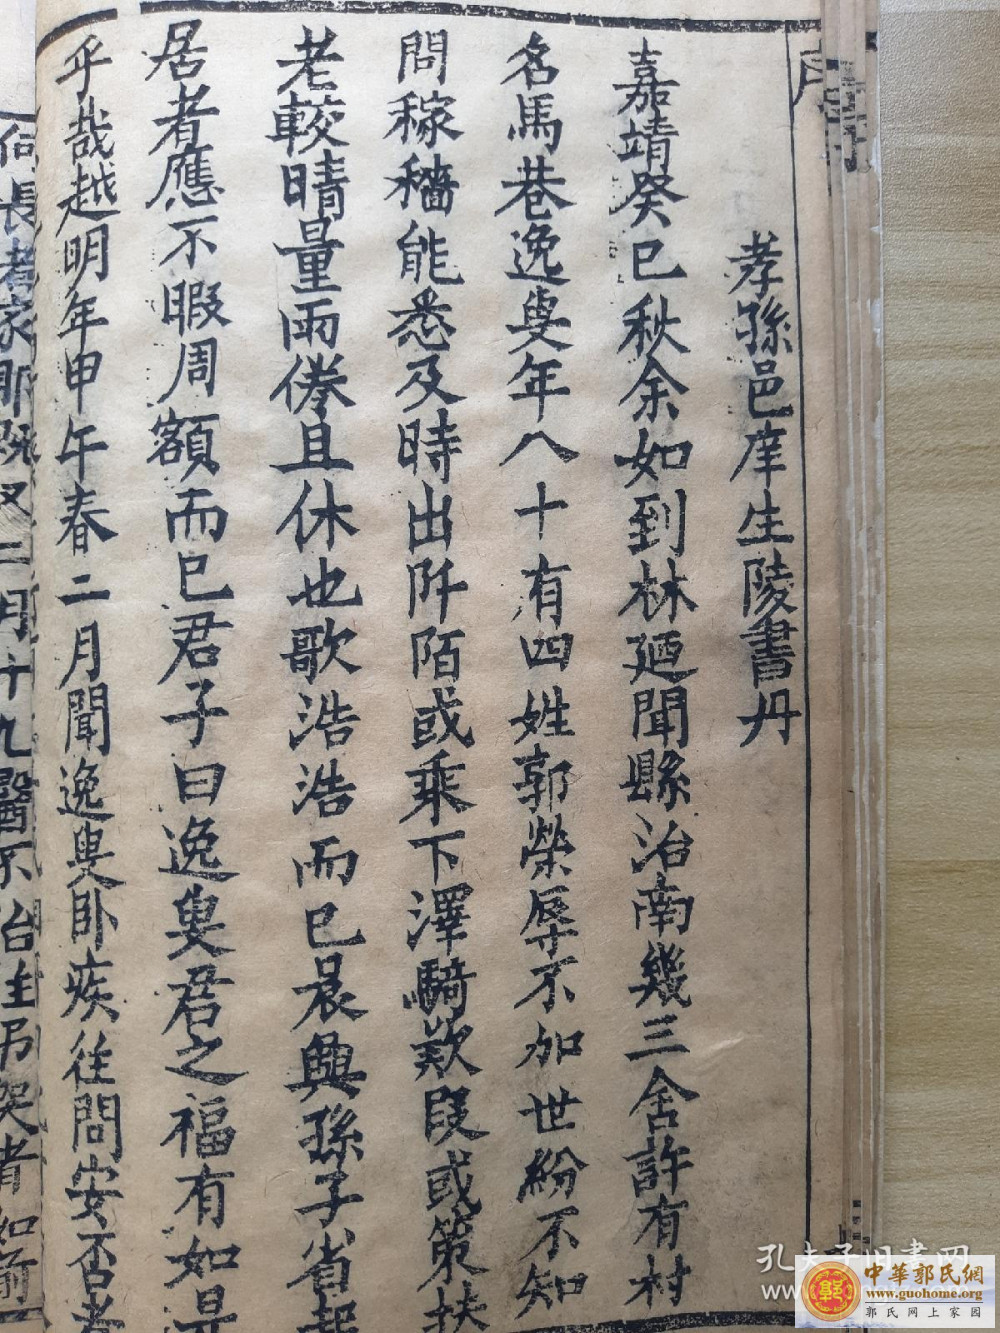 序
孝孫邑庠生陵書丹
嘉靖癸巳秋余如到林廼聞縣治南幾三舍許有村
名馬巷逸叟年八十有四姓郭榮辱不加世紛不知
問稼穡能悉及時出阡陌或乘下澤騎欵段或策扶
老較晴量雨倦且休也歌浩浩而已晨興孫子省起
居者應不暇周額而已君子曰逸叟君之福有如是
乎哉越明年甲午春二月聞逸叟卧疾往問安否者
長者家耶既
月十九醫不治往吊哭者如
孔夫子旧书网
中華郭氏網
www.guohome.org
郭氏网上家园
郭